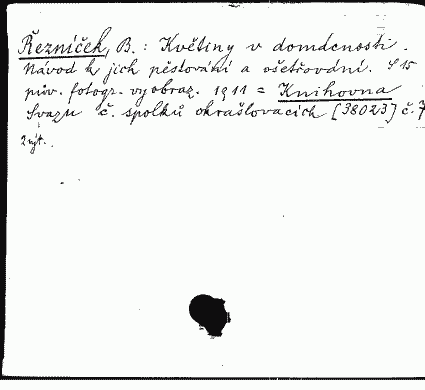 Řezníček, B.: Květiny v domácnosti.
Návod k jich pěstování a ošetřování. S 15
pův. fotogr. vyobraz. 1911 = Knihovna
Svazu č. spolků okrašlovacích [38023] č. 7
2 výt.